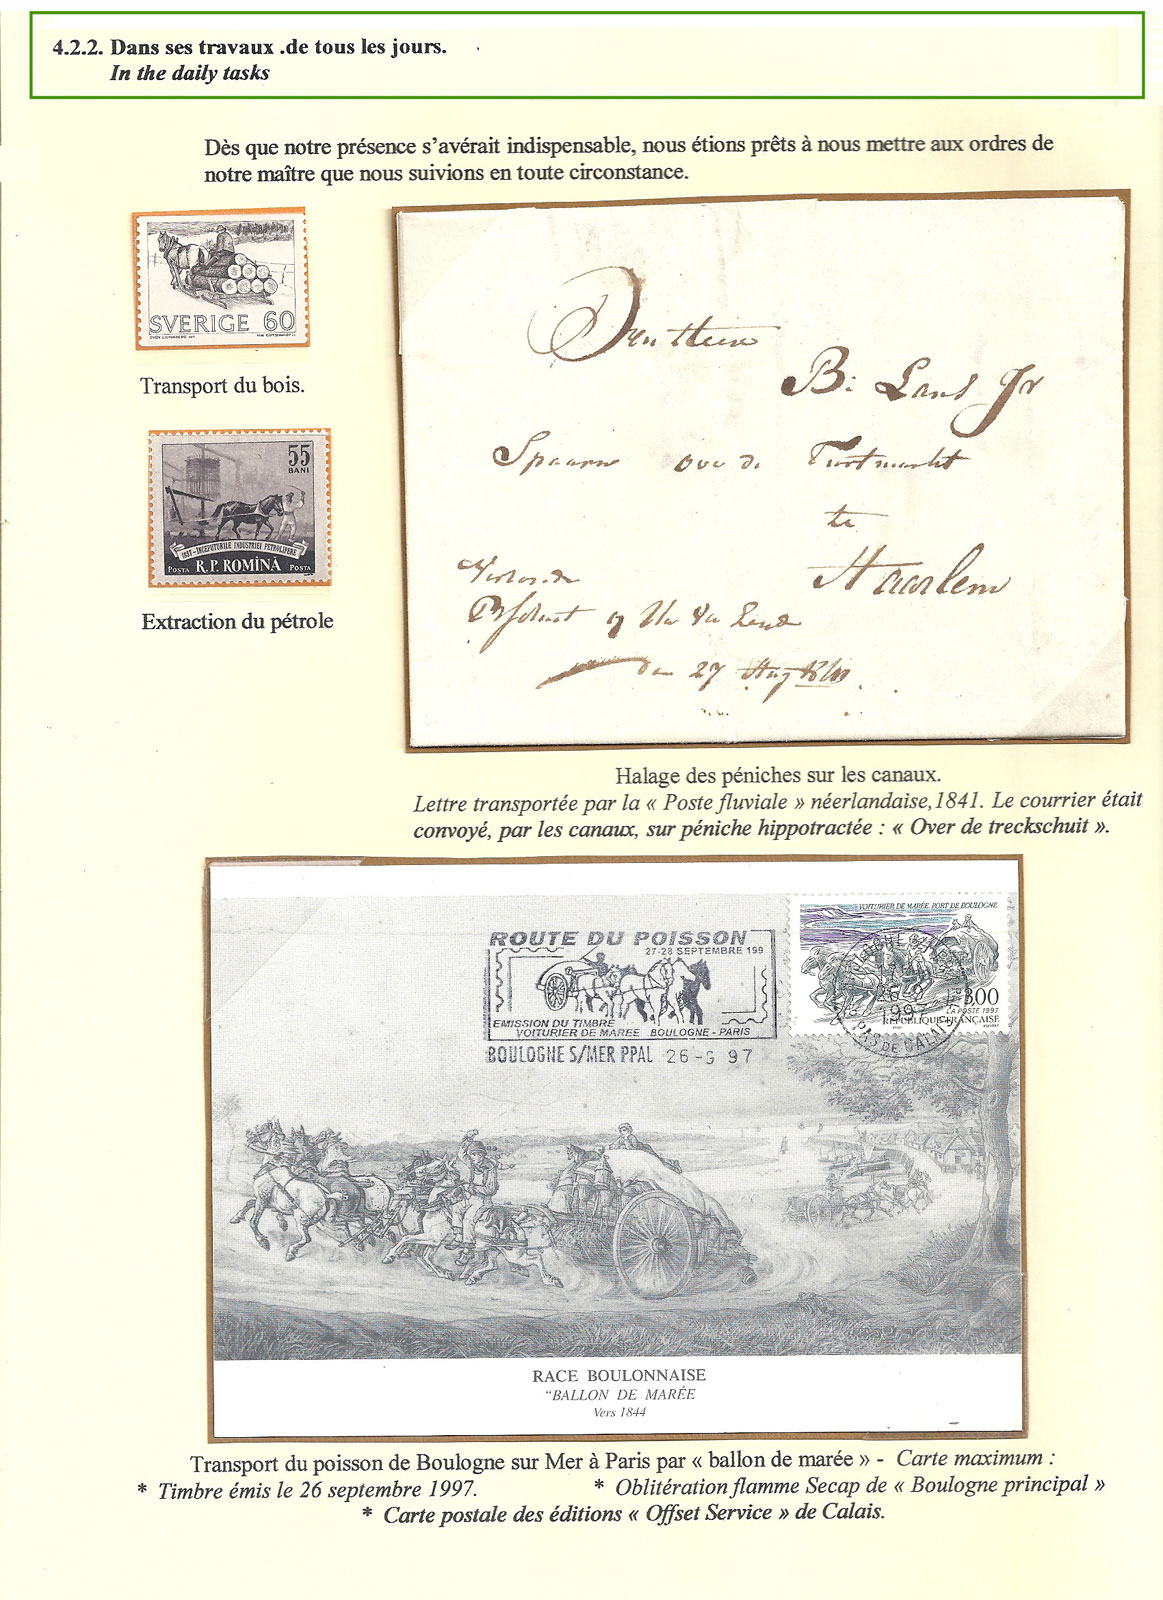 4.2.2. Dans ses travaux .de tous les jours.
In the daily tasks
Dès que notre présence s’avérait indispensable, nous étions prêts à nous mettre aux ordres de
notre maître que nous suivions en toute circonstance.
SVERIGE 60
Transport du bois.
55
BANI
1857-INCEPUTURILE INDUSTRIEI PETROLIFERE
POSTA R.P. ROMÎNA POSTA
Extraction du pétrole
B: Lans Jr
te
Haarlem
27 Aug
Halage des péniches sur les canaux.
Lettre transportée par la « Poste fluviale » néerlandaise,1841. Le courrier était
convoyé, par les canaux, sur péniche hippotractée : « Over de treckschuit ».
ROUTE DU POISSON
27-28 SEPTEMBRE 199
EMISSION DU TIMBRE
VOITURIER DE MAREE BOULOGNE - PARIS
BOULOGNE S/MER PPAL 26-9 97
VOITURIER DE MARÉE. PORT DE BOULOGNE
3,00
LA POSTE 1997
RÉPUBLIQUE FRANÇAISE
1997
PAS DE CALAIS
RACE BOULONNAISE
"BALLON DE MARÉE
Vers 1844
Transport du poisson de Boulogne sur Mer à Paris par « ballon de marée » - Carte maximum :
* Timbre émis le 26 septembre 1997. * Oblitération flamme Secap de « Boulogne principal »
* Carte postale des éditions « Offset Service » de Calais.